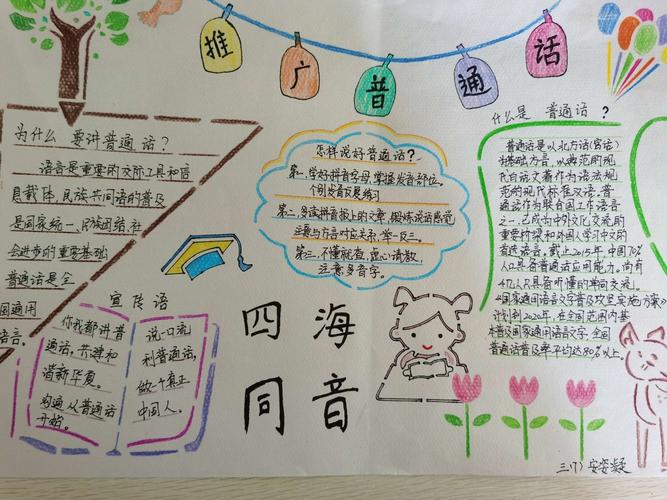 推广普通话
为什么 要讲普通话？
语言是重要的交际工具和信
息载体，民族共同语的普及
是国家统一、民族团结、社
会进步的重要基础
普通话是全
国通用
语言。
怎样说好普通话？
第一，学好拼音字母，掌握发音部位。
个别发音反复练习
第二，多读拼音报上的文章，锻炼说话感觉
注意与方言对应关系，举一反三。
第三，不懂就查，虚心请教，
注意多音字。
什么是 普通话？
普通话是以北方话(官话)
为基础方言，以典范的现
代白话文著作为语法规
范的现代标准汉语。普
通话作为联合国工作语言
之一，已成为中外文化交流的
重要桥梁和外国人学习中文的
首选语言。截止2015年，中国70%
人口具备普通话应用能力，尚有
4亿人只具备听懂的单向交流。
《国家通用语言文字普及攻坚实施方案》
计划到2020年，在全国范围内基
本普及国家通用语言文字，全国
普通话普及率平均达80%以上
宣传语
你我都讲普
通话，共建和
谐新华夏。
沟通从普通话
开始。
说一口流
利普通话，
做一个真正
中国人。
四海
同音
三(7) 安姿凝